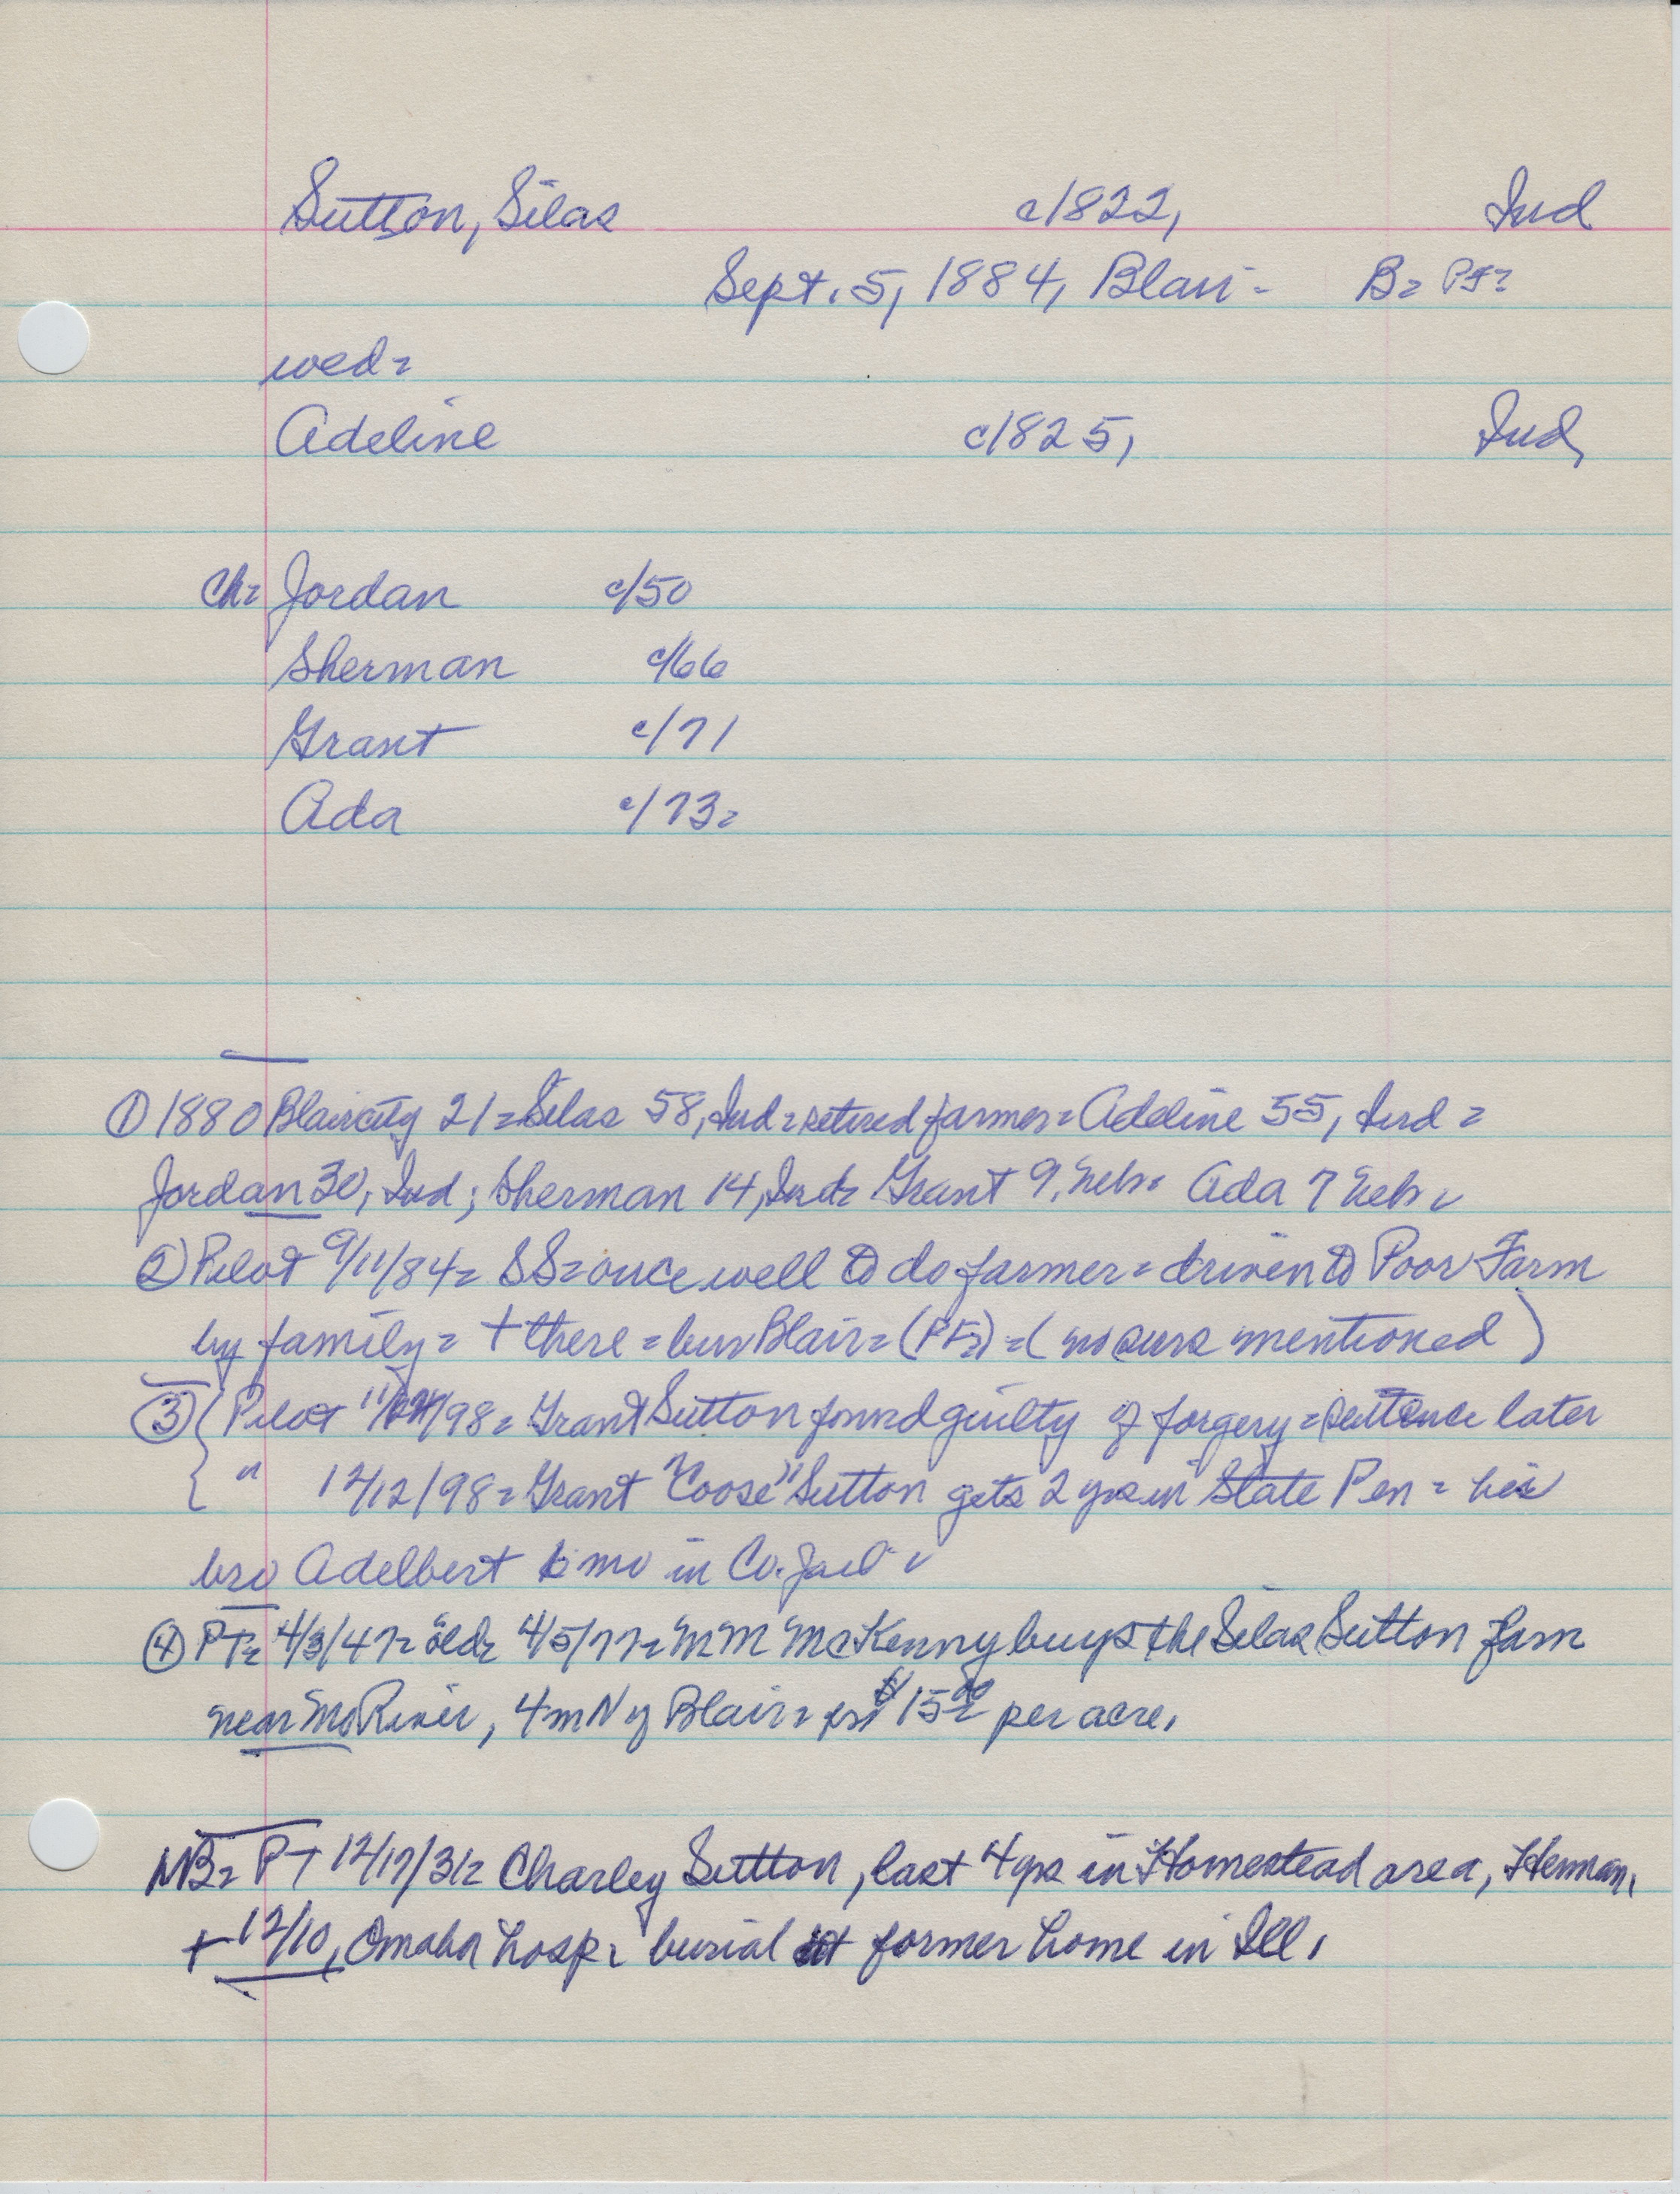 Sutton, Silas c1822, Ind
Sept. 5, 1884, Blair - B= PF=
wed=
Adeline c1825, Ind,
Ch= Jordan c/50
Sherman c/66
Grant c/71
Ada c/73=
① 1880 Blair city 21= Silas 58, Ind = retired farmer = Adeline 55, Ind =
Jordan 30, Ind; Sherman 14, Ind= Grant 9, Neb= Ada 7 Neb=
② Pilot 9/11/84= SS= once well to do farmer = driven to Poor Farm
by family = + there = bur Blair = (PF=) = (no  mentioned)
③ { Pilot 11/ /98= Grant Sutton found guilty of forgery = sentence later
{ " 12/12/98= Grant "Coose" Sutton gets 2 yrs in State Pen = his
bro Adelbert 6 mo in Co. Jail =
④ PT= 4/3/47= old= 4/5/77= MM McKenny buys the Silas Sutton farm
near Mo River, 4 m N of Blair = for $15.00 per acre.
NB= PT 12/17/31= Charley Sutton, last 4 yrs in Homestead area, Herman,
+ 12/10, Omaha hosp= burial at former home in Ill,